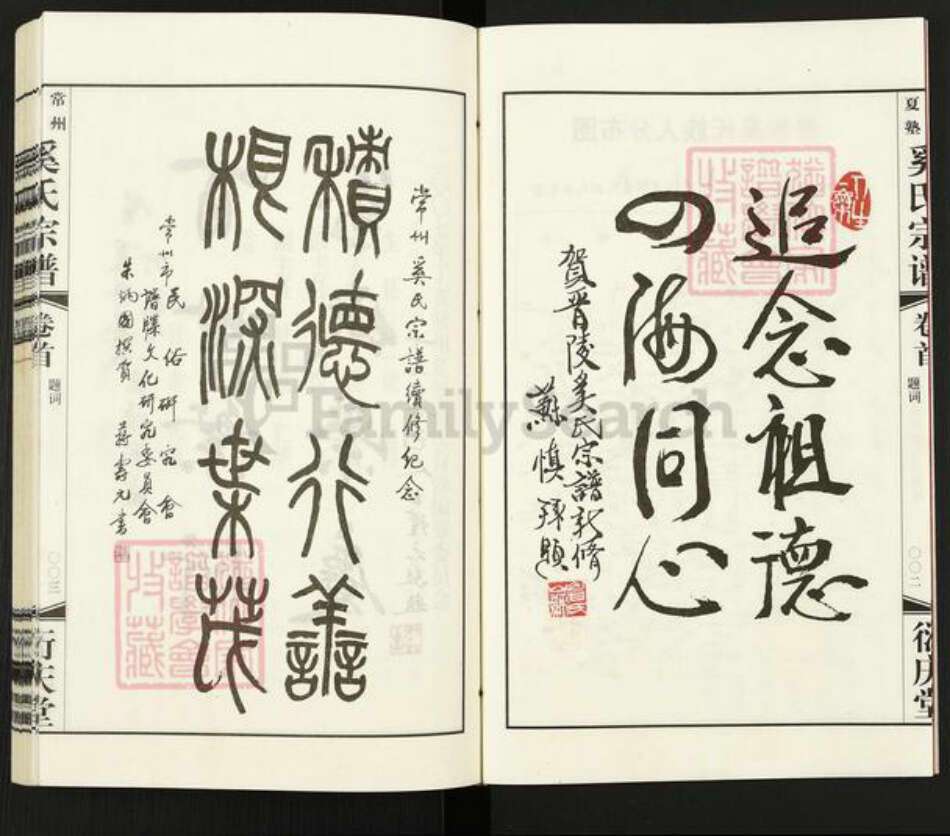 夏塾
奚氏宗谱
卷首
题词
〇〇二
衍庆堂
追念祖德
四海同心
賀晋陵奚氏宗譜新修
蘇慎拜題
常州
奚氏宗谱
卷首
题词
〇〇三
衍庆堂
常州奚氏宗譜續修紀念
積德行善
根深葉茂
常州市民俗研究會
譜牒文化研究委員會
朱炳國撰賀
蔣壽元書
FamilySearch